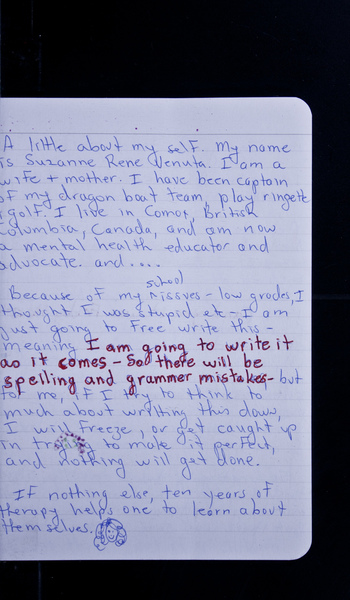 A little about my self. My name
is Suzanne Rene Venuta. I am a
wife + mother. I have been captain
of my dragon boat team, play ringette
golf. I live in Comox, British
Columbia, Canada, and am now
a mental health educator and
advocate. and....
school
Because of my issues - low grades, I
thought I was stupid etc - I am
just going to free write this -
meaning I am going to write it
as it comes - So there will be
spelling and grammer mistakes - but
for me, if I try to think to
much about writting this down,
I will freeze, or get caught up
in trying to make it perfect,
and nothing will get done.
If nothing else, ten years of
therapy helps one to learn about
themselves.